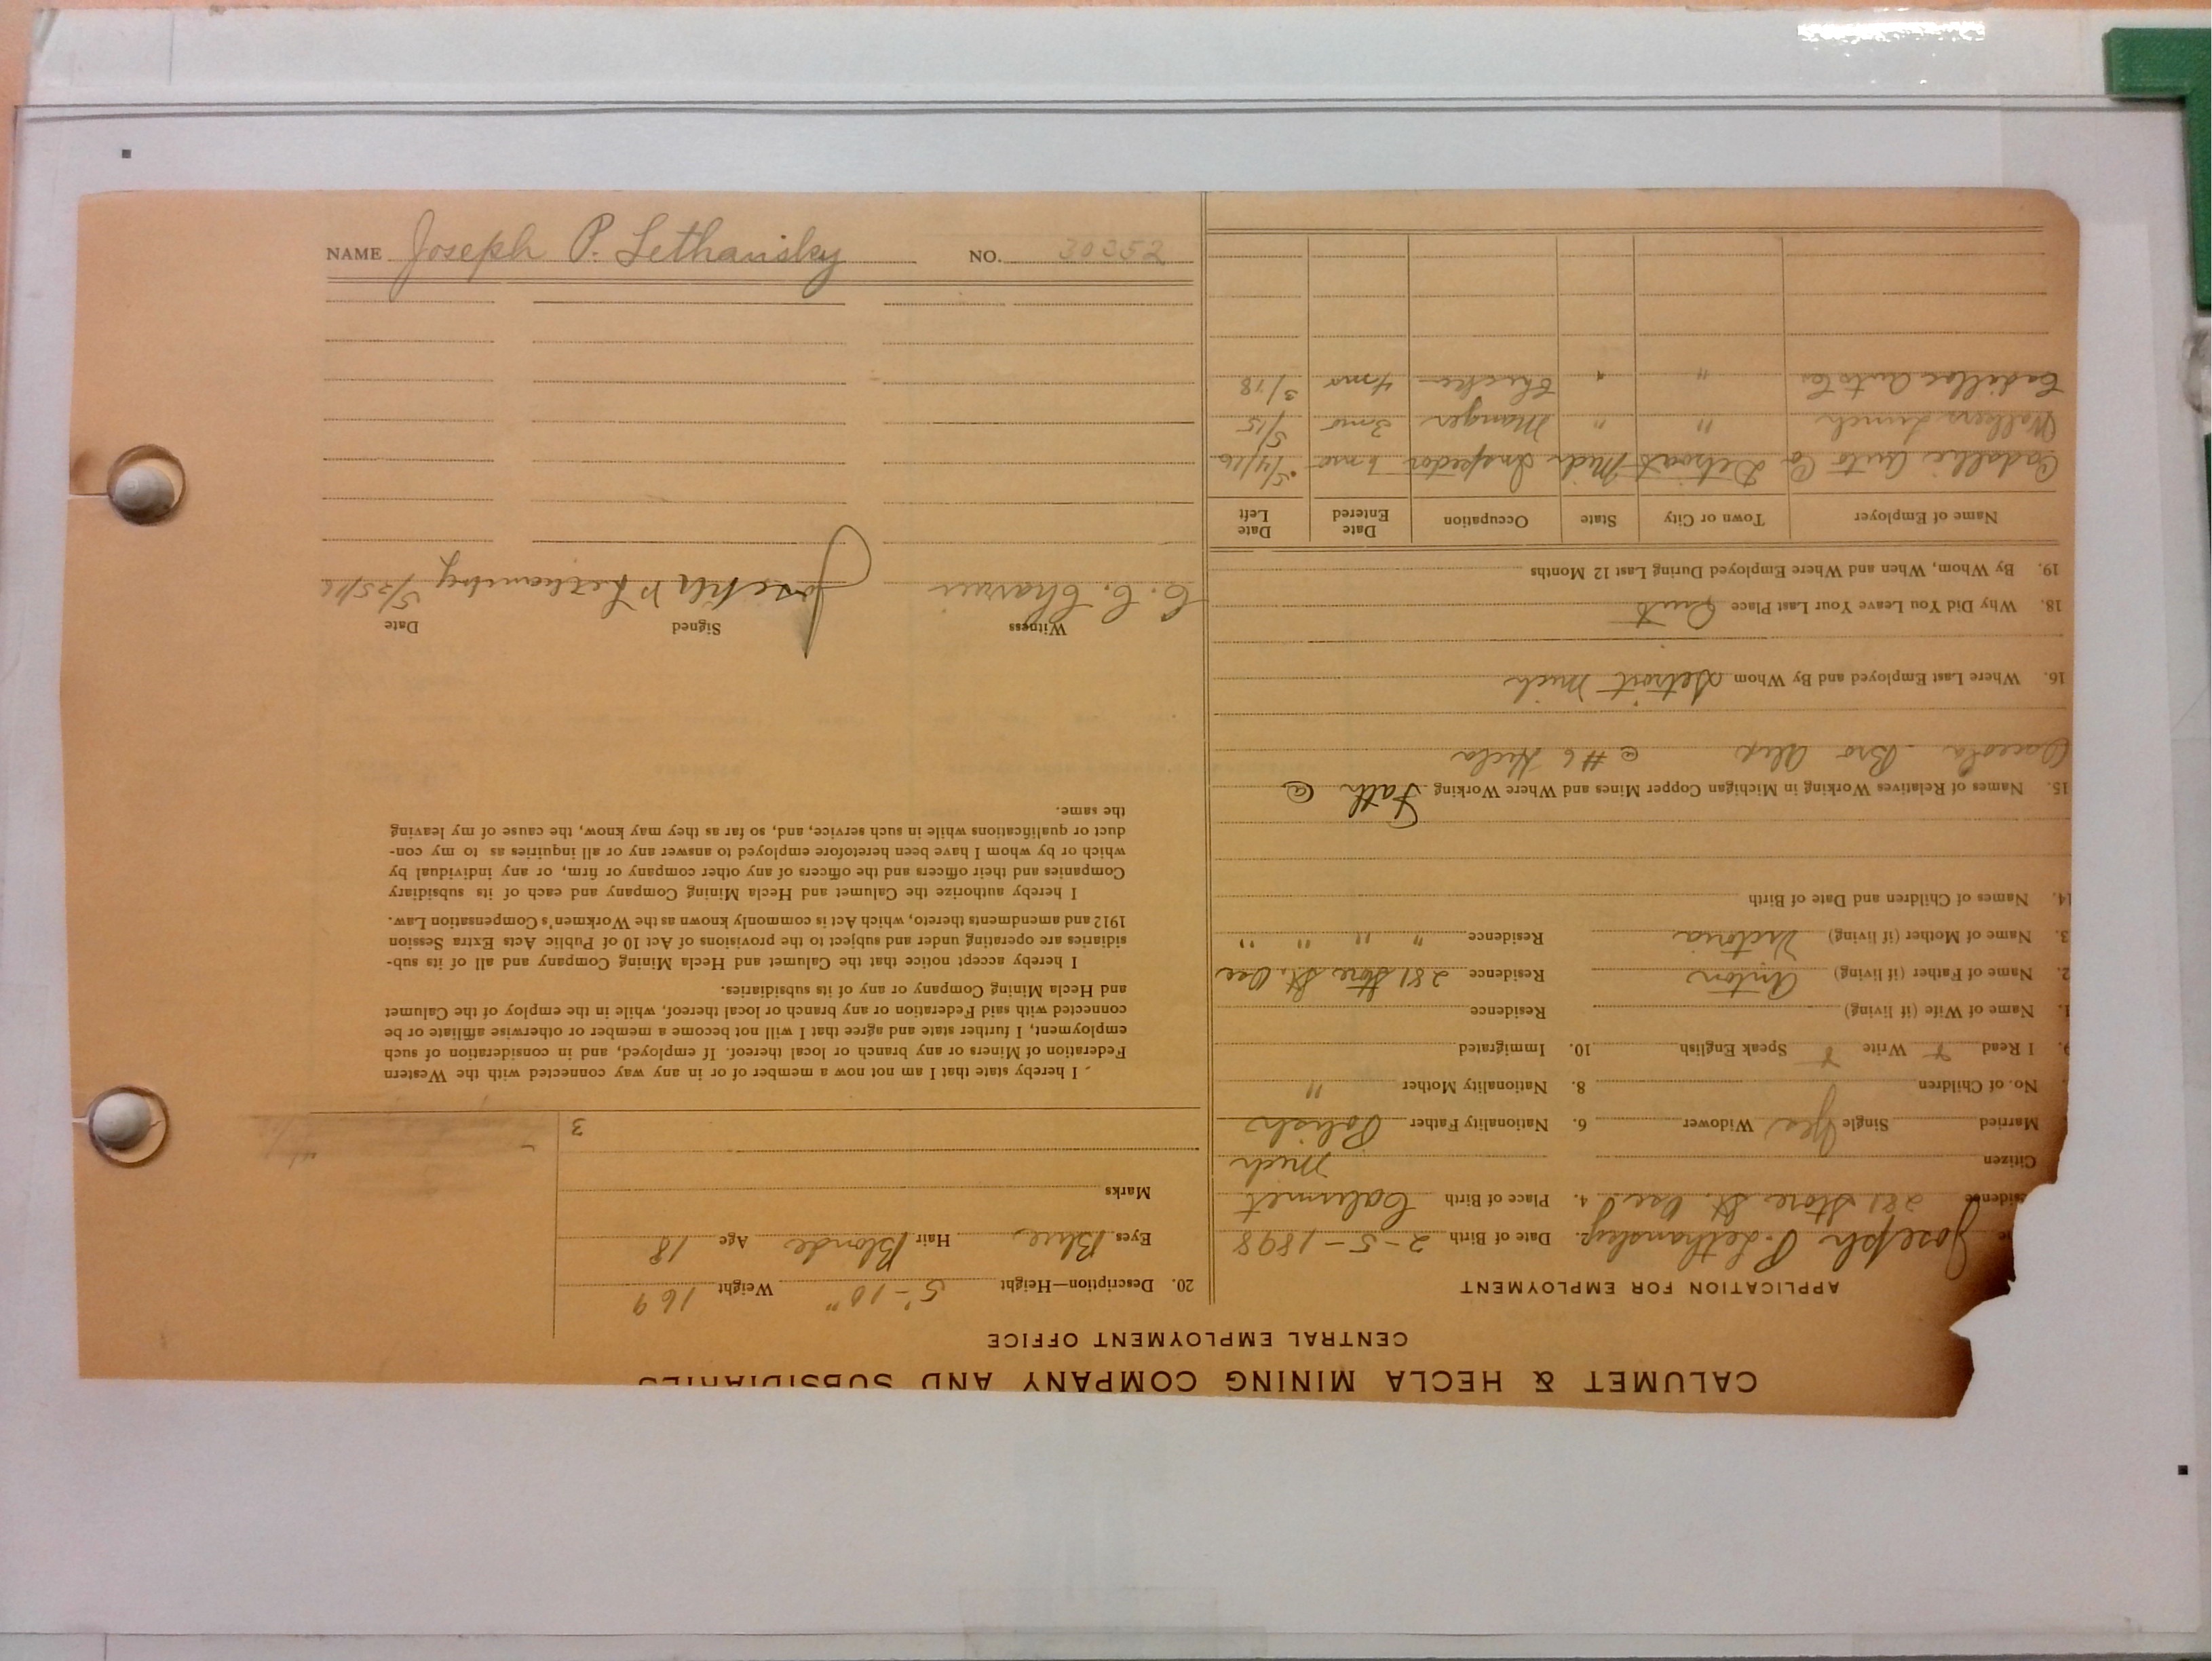 CALUMET & HECLA MINING COMPANY AND SUBSIDIARIES
CENTRAL EMPLOYMENT OFFICE
APPLICATION FOR EMPLOYMENT
Joseph P. Lethansky 2. Date of Birth 2-5-1898
281 Store St. Osc. 4. Place of Birth Calumet
Citizen Mich
Married Single Yes Widower 6. Nationality Father Polish
No. of Children 8. Nationality Mother "
9. I Read Write Speak English 10. Immigrated
1. Name of Wife (if living) Residence
2. Name of Father (if living) Anton Residence 281 Store St. Osc
3. Name of Mother (if living) Victoria Residence " " " "
14. Names of Children and Date of Birth
15. Names of Relatives Working in Michigan Copper Mines and Where Working Fath @
Osceola Bro Alex @ #6 Hecla
16. Where Last Employed and By Whom Detroit Mich
18. Why Did You Leave Your Last Place Quit
19. By Whom, When and Where Employed During Last 12 Months
Name of Employer Town or City State Occupation Date Entered Date Left
Cadallic Auto Co Detroit Mich Inspector 1 mo 5/4/16
Walkers Lunch " " Manger 3mo 5/15
Cadillac Auto Co " " Checker 4mo 3/18
20. Description—Height 5'-10" Weight 169
Eyes Blue Hair Blonde Age 18
Marks
3
I hereby state that I am not now a member of or in any way connected with the Western
Federation of Miners or any branch or local thereof. If employed, and in consideration of such
employment, I further state and agree that I will not become a member or otherwise affiliate or be
connected with said Federation or any branch or local thereof, while in the employ of the Calumet
and Hecla Mining Company or any of its subsidiaries.
I hereby accept notice that the Calumet and Hecla Mining Company and all of its sub-
sidiaries are operating under and subject to the provisions of Act 10 of Public Acts Extra Session
1912 and amendments thereto, which Act is commonly known as the Workmen's Compensation Law.
I hereby authorize the Calumet and Hecla Mining Company and each of its subsidiary
Companies and their officers and the officers of any other company or firm, or any individual by
which or by whom I have been heretofore employed to answer any or all inquiries as to my con-
duct or qualifications while in such service, and, so far as they may know, the cause of my leaving
the same.
Witness Signed Date
Joseph P Lethansky 5/25/16
NAME Joseph P. Lethansky NO. 30352